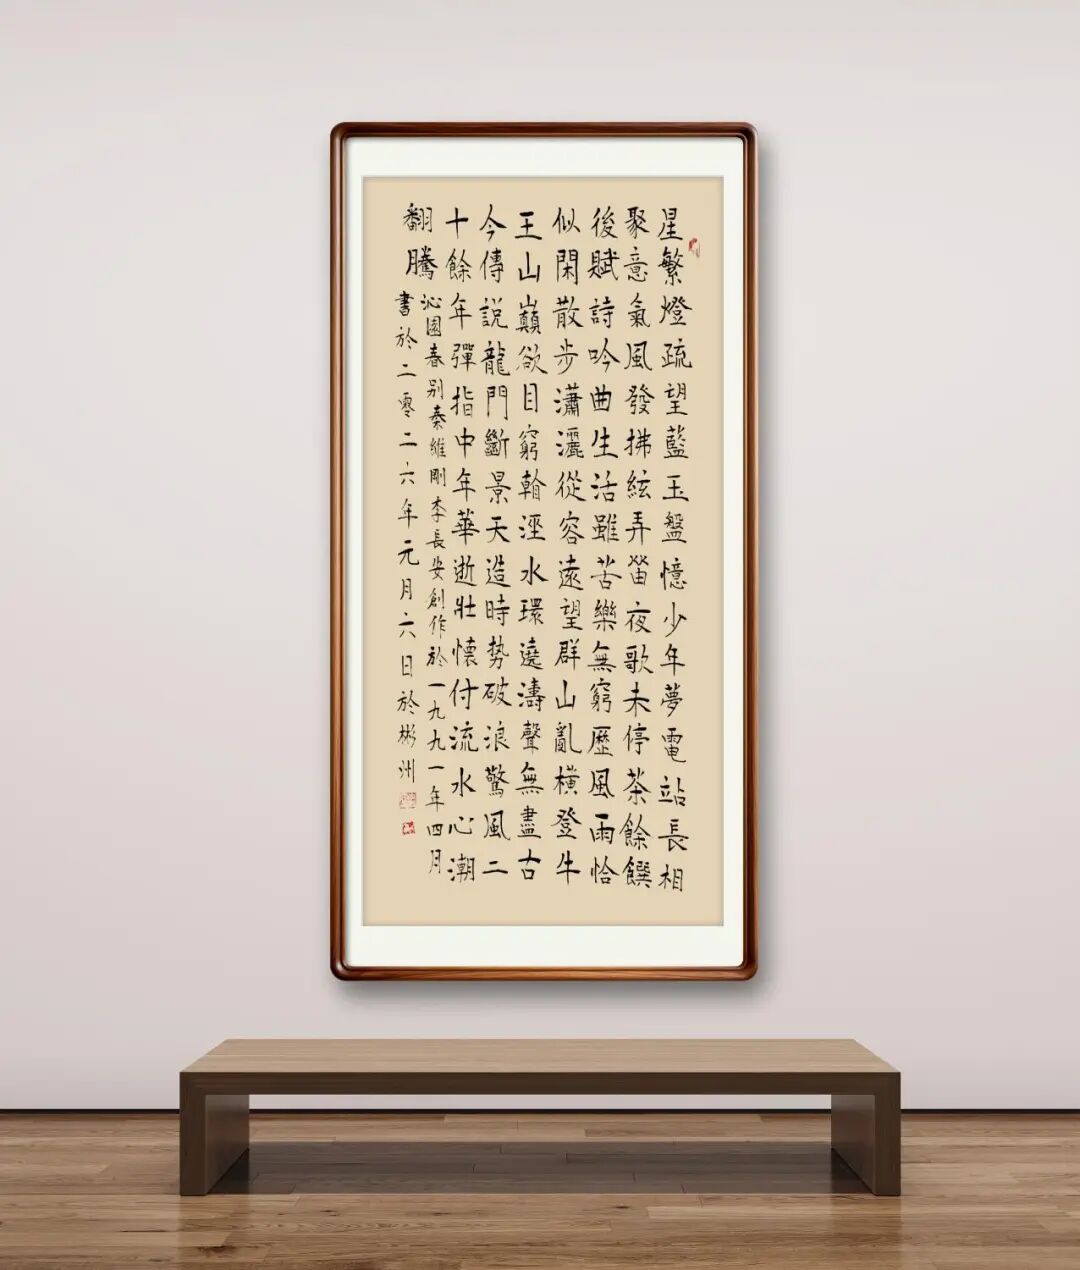 星繁燈疏望藍玉盤憶少年夢電站長相
聚意氣風發拂絃弄笛夜歌未停茶餘饌
後賦詩吟曲生活雖苦樂無窮歷風雨恰
似閑散步瀟灑從容遠望群山亂橫登牛
王山巔欲目窮翰涇水環遶濤聲無盡古
今傳説龍門斷景天造時勢破浪驚風二
十餘年彈指中年華逝壯懷付流水心潮
翻騰
沁園春别秦維剛李長安創作於一九九一年四月
書於二零二六年元月六日於彬州